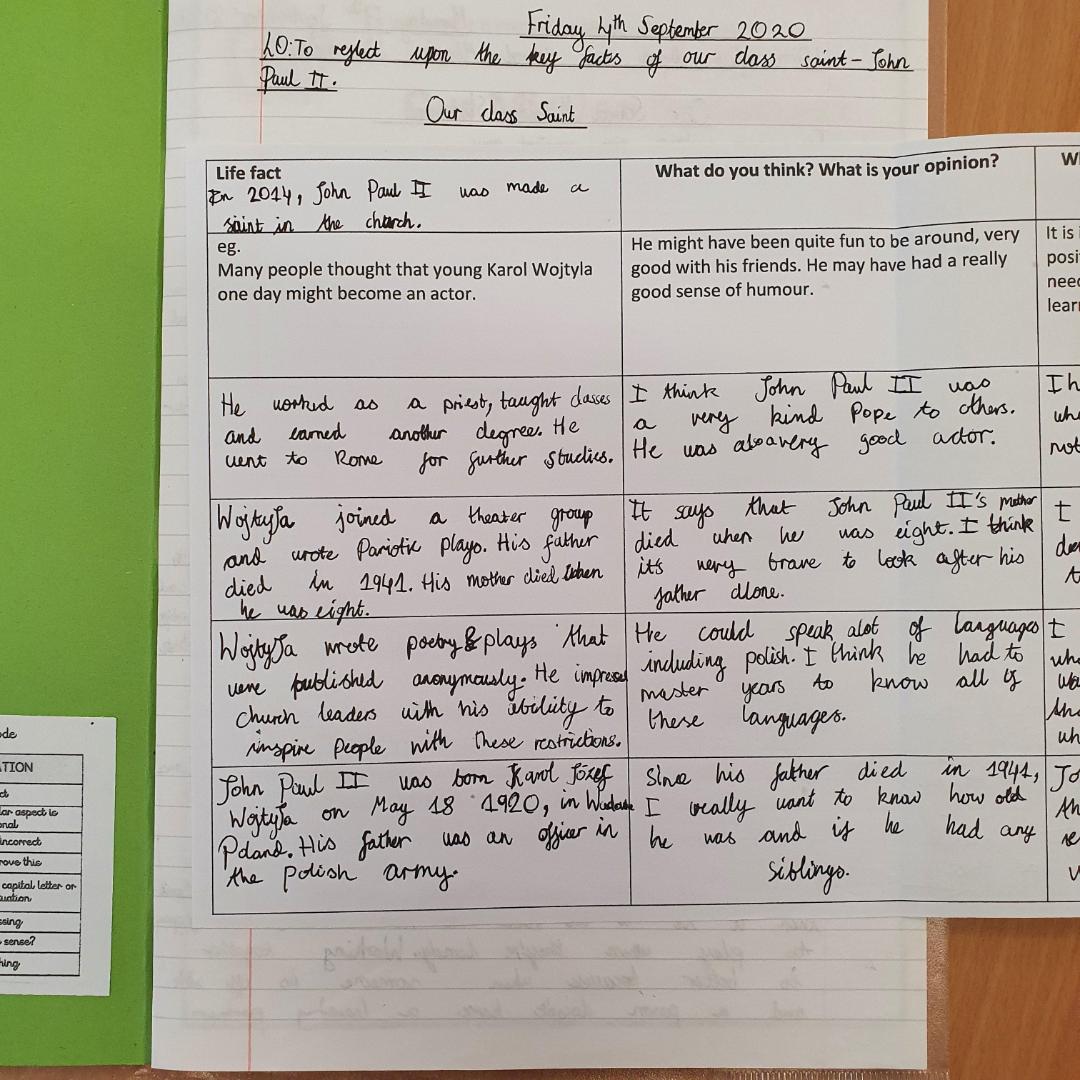 Friday 4th September 2020
LO:To reflect upon the key facts of our class saint - John
Paul II.
Our class Saint
Life fact
In 2014, John Paul II was made a
saint in the church.
What do you think? What is your opinion?
eg.
Many people thought that young Karol Wojtyla
one day might become an actor.
He might have been quite fun to be around, very
good with his friends. He may have had a really
good sense of humour.
It is
He worked as a priest, taught classes
and earned another degree. He
went to Rome for further studies.
I think John Paul II was
a very kind Pope to others.
He was also a very good actor.
I h
wh
not
Wojtyła joined a theater group
and wrote Pariotic plays. His father
died in 1941. His mother died when
he was eight.
It says that John Paul II's mother
died when he was eight. I think
it's very brave to look after his
father alone.
I
Wojtyła wrote poetry & plays that
were published anonymously. He impressed
church leaders with his ability to
inspire people with these restrictions.
He could speak alot of languages
including polish. I think he had to
master years to know all of
these languages.
I
John Paul II was born Karol Józef
Wojtyła on May 18 1920, in
Poland. His father was an officer in
the polish army.
Since his father died in 1941,
I really want to know how old
he was and if he had any
siblings.
Jo
ATION
lar aspect is
onal
incorrect
rove this
capital letter or
uation
ssing
sense?
hing